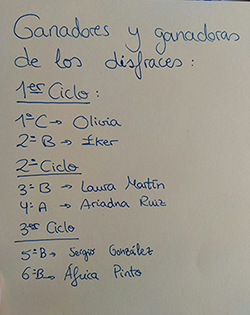 Ganadores y ganadoras
de los disfraces:
1er Ciclo:
1º C → Olivia
2º B → Iker
2º Ciclo
3º B → Laura Martín
4º A → Ariadna Ruiz
3er Ciclo
5º B → Sergio González
6º B → África Pinto